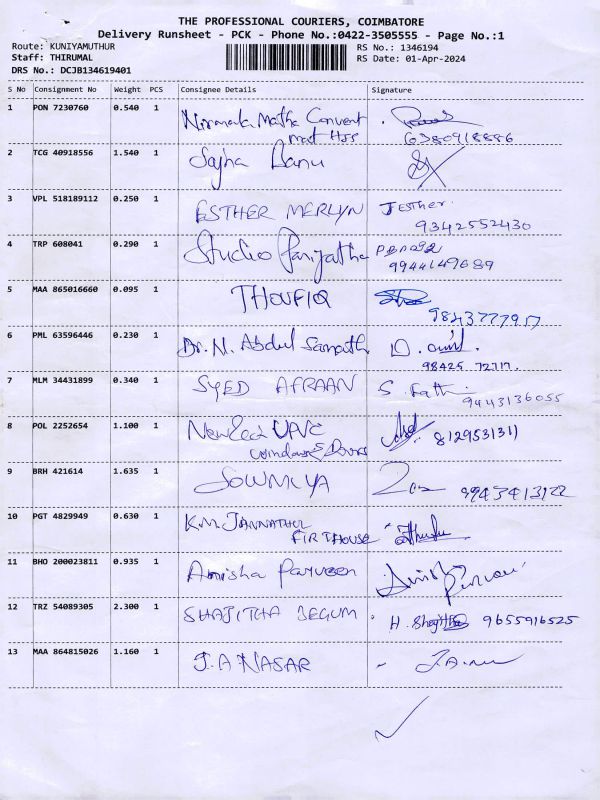 THE PROFESSIONAL COURIERS, COIMBATORE
Delivery Runsheet - PCK - Phone No.:0422-3505555 - Page No.:1
Route: KUNIYAMUTHUR RS No.: 1346194
Staff: THIRUMAL RS Date: 01-Apr-2024
DRS No.: DCJB134619401
S No Consignment No Weight PCS Consignee Details Signature
1 PON 7230760 0.540 1 Nirmala Matha Convent
mat HSS 6380918886
2 TCG 40918556 1.540 1 Sajha Banu
3 VPL 518189112 0.250 1 ESTHER MERLYN J Esther.
9342552430
4 TRP 608041 0.290 1 Studio Parijatha
9944149689
5 MAA 865016660 0.095 1 THOUFIQ
9843777917
6 PML 63596446 0.230 1 Dr. N. Abdul D.
98425 72717.
7 MLM 34431899 0.340 1 SYED AFRAAN S. Fath
9443136055
8 POL 2252654 1.100 1 UPVC 812953131)
Windows & Doors
9 BRH 421614 1.635 1 SOWMIYA 9943413122
10 PGT 4829949 0.630 1 K.M. JANNATHUL
FIRTHOUSE
11 BHO 200023811 0.935 1 Anisha Parveen
12 TRZ 54089305 2.300 1 SHAJITHA BEGUM H. 9655916525
13 MAA 864815026 1.160 1 J.A NASAR